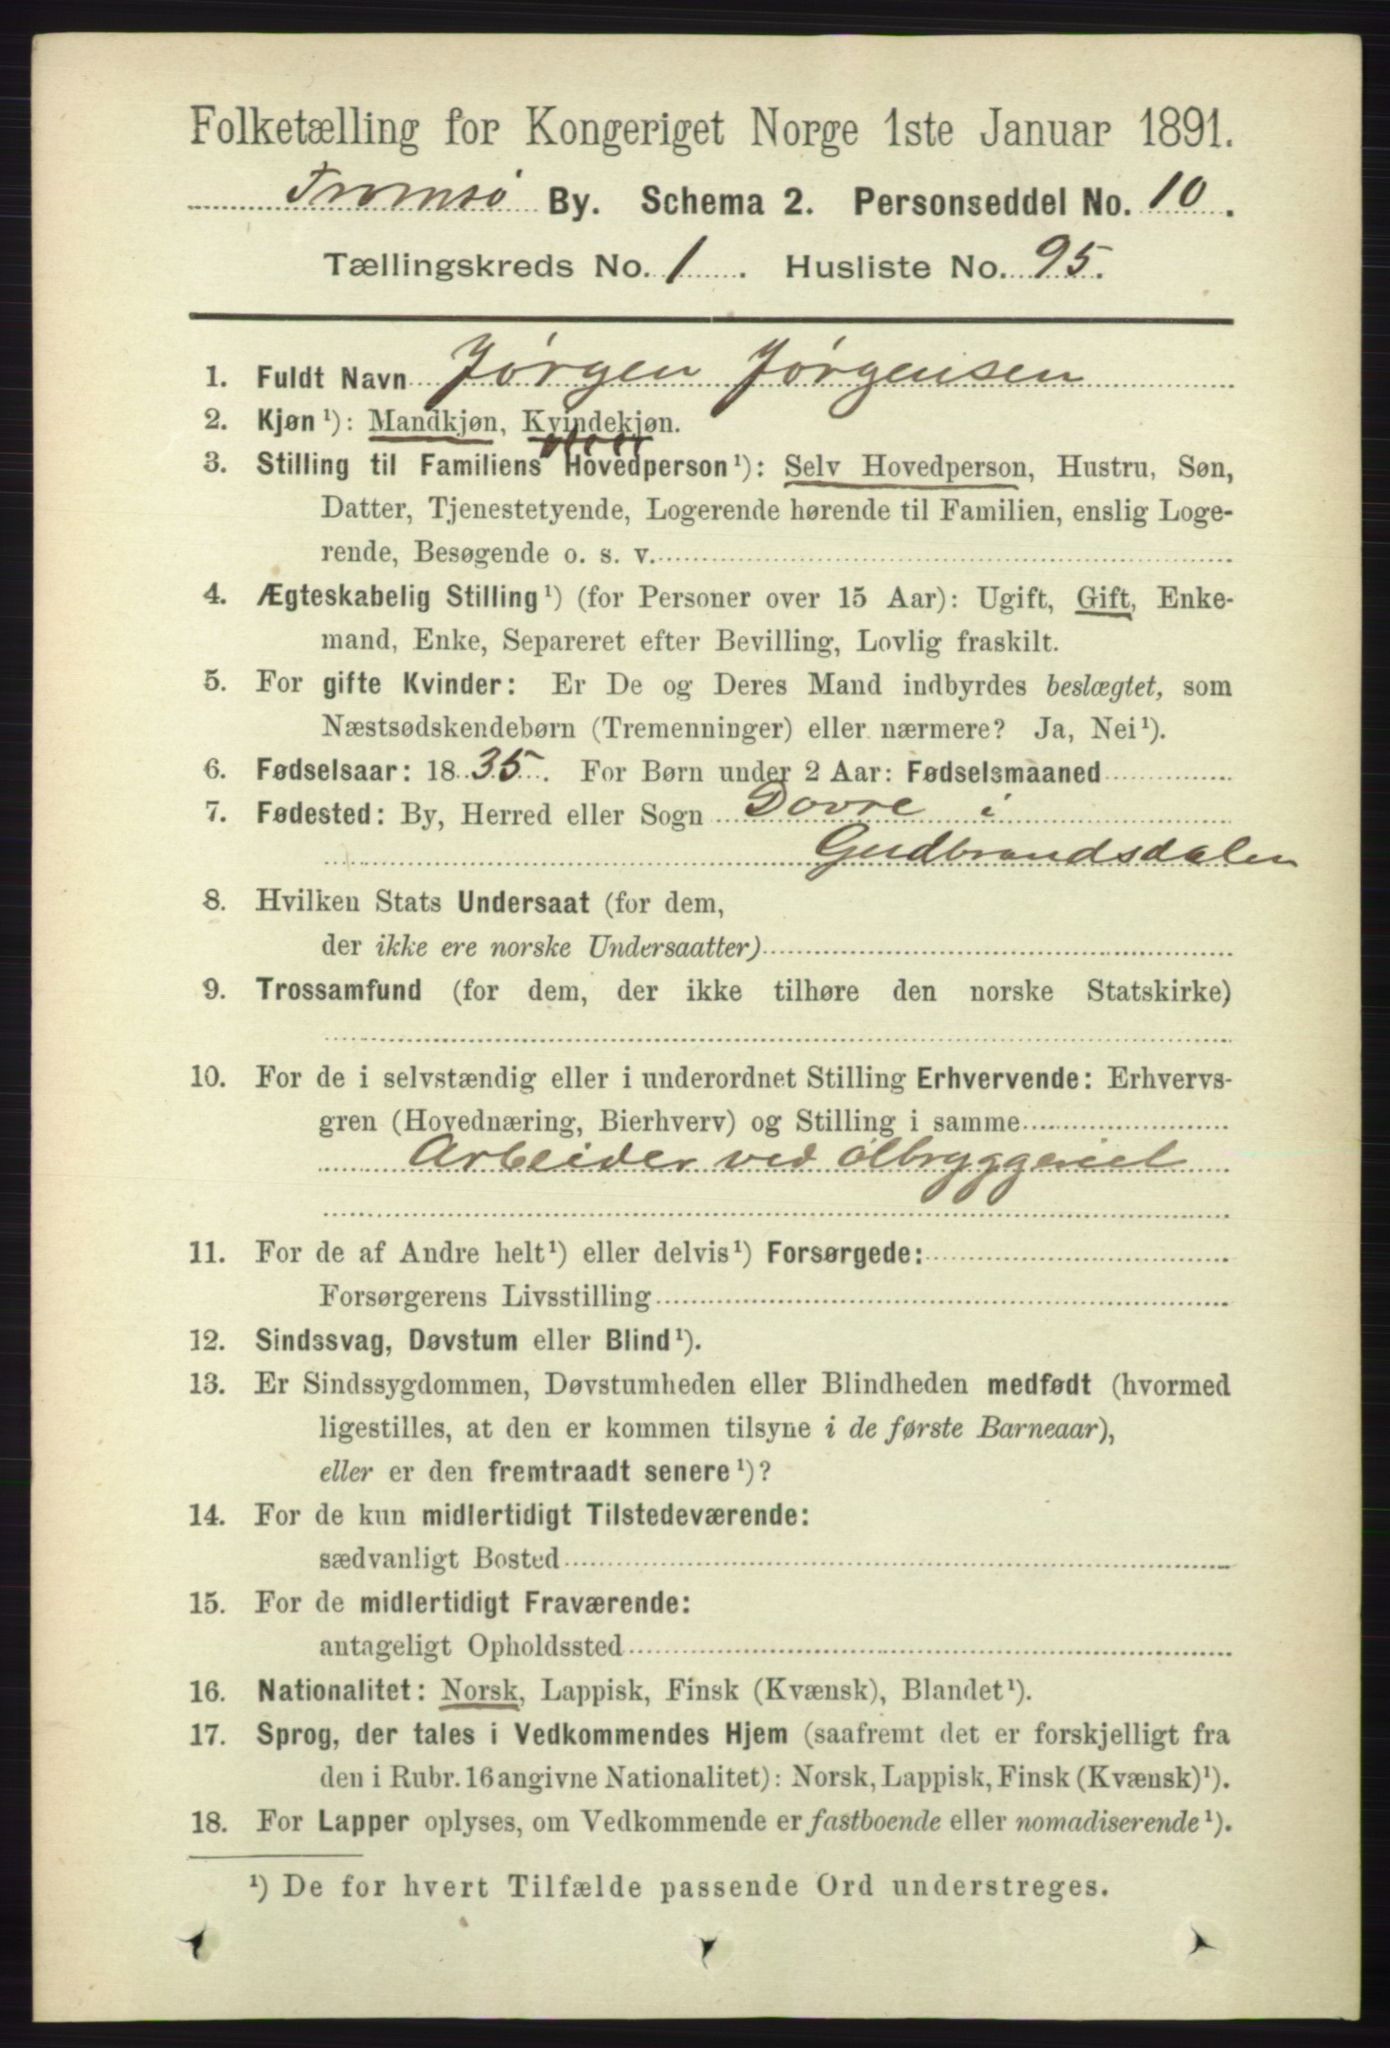 Folketælling for Kongeriget Norge 1ste Januar 1891.
Tromsø By. Schema 2. Personseddel No. 10.
Tællingskreds No. 1. Husliste No. 95.
1. Fuldt Navn Jørgen Jørgensen
2. Kjøn¹): Mandkjøn, Kvindekjøn.
3. Stilling til Familiens Hovedperson¹): Selv Hovedperson, Hustru, Søn,
Datter, Tjenestetyende, Logerende hørende til Familien, enslig Loge-
rende, Besøgende o. s. v.
4. Ægteskabelig Stilling¹) (for Personer over 15 Aar): Ugift, Gift, Enke-
mand, Enke, Separeret efter Bevilling, Lovlig fraskilt.
5. For gifte Kvinder: Er De og Deres Mand indbyrdes beslægtet, som
Næstsødskendebørn (Tremenninger) eller nærmere? Ja, Nei¹).
6. Fødselsaar: 1835. For Børn under 2 Aar: Fødselsmaaned
7. Fødested: By, Herred eller Sogn Dovre i
Gudbrandsdalen
8. Hvilken Stats Undersaat (for dem,
der ikke ere norske Undersaatter)
9. Trossamfund (for dem, der ikke tilhøre den norske Statskirke)
10. For de i selvstændig eller i underordnet Stilling Erhvervende: Erhvervs-
gren (Hovednæring, Bierhverv) og Stilling i samme
Arbeider ved ølbryggeriet
11. For de af Andre helt¹) eller delvis¹) Forsørgede:
Forsørgerens Livsstilling
12. Sindssvag, Døvstum eller Blind¹).
13. Er Sindssygdommen, Døvstumheden eller Blindheden medfødt (hvormed
ligestilles, at den er kommen tilsyne i de første Barneaar),
eller er den fremtraadt senere¹)?
14. For de kun midlertidigt Tilstedeværende:
sædvanligt Bosted
15. For de midlertidigt Fraværende:
antageligt Opholdssted
16. Nationalitet: Norsk, Lappisk, Finsk (Kvænsk), Blandet¹).
17. Sprog, der tales i Vedkommendes Hjem (saafremt det er forskjelligt fra
den i Rubr. 16 angivne Nationalitet): Norsk, Lappisk, Finsk (Kvænsk)¹).
18. For Lapper oplyses, om Vedkommende er fastboende eller nomadiserende¹).
¹) De for hvert Tilfælde passende Ord understreges.